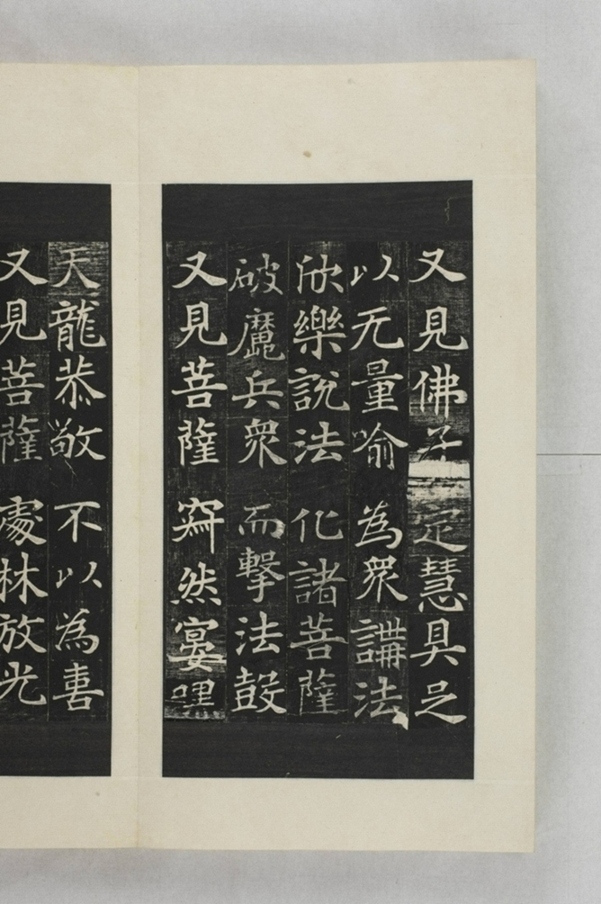 又見佛子 定慧具足
以无量喻 為衆講法
欣樂說法 化諸菩薩
破魔兵衆 而擊法鼓
又見菩薩 寂然宴嘿
天龍恭敬 不以為喜
又見菩薩 處林放光